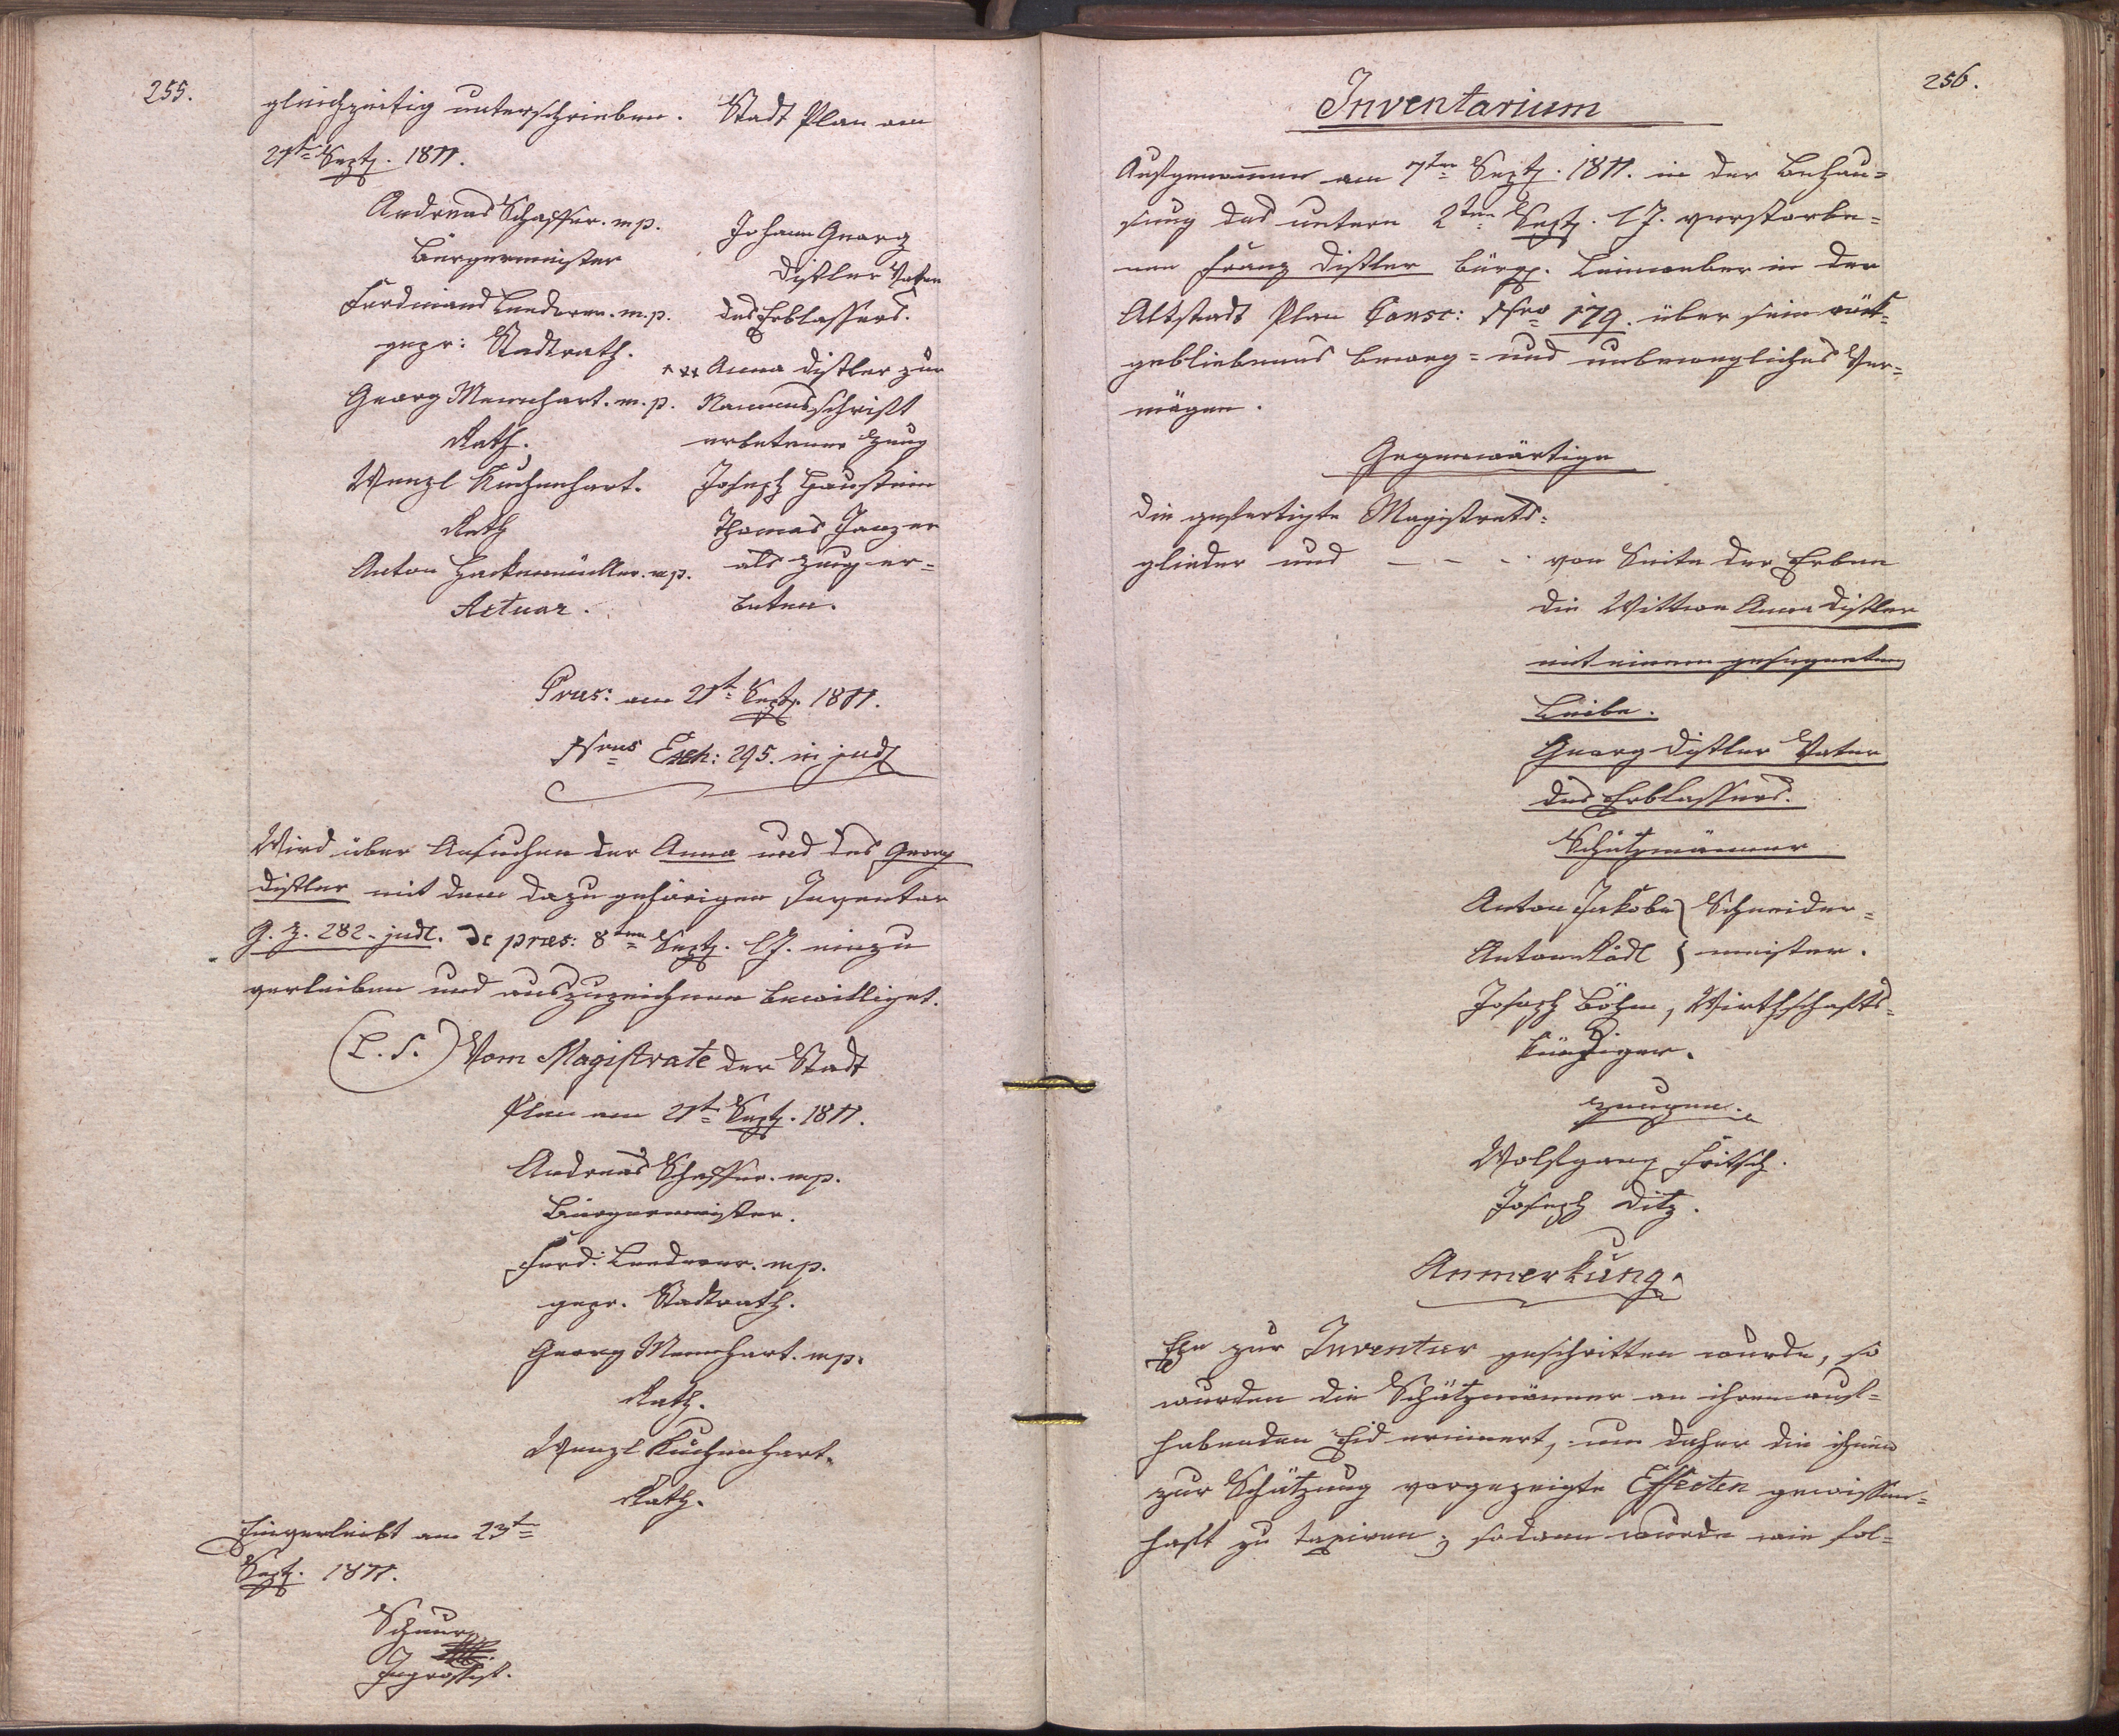 255.
gleichzeitig unterschrieben. Stadt Plan am
21t Septb. 1811.
Andreas Schaffer. mp.
Bürgermeister
Ferdinand Lenderer. m. p.
gepr: Stadtrath.
Georg Mennhart. m. p.
Rath.
Wenzl Kuchenhart.
Rath
Anton Hackenmüller. mp.
Actuar.
Johann Georg
Distler Vater
des Erblassers.
xxx Anna Distler zur
Namensschrift
erbetener Zeug
Joseph Haustein
Thomas Janzer
als Zeug er=
beten.
Præs: am 21t Septb. 1811.
Nrus Exh: 295. in judl
Wird über Ansuchen der Anna und des Georg
Distler mit dem dazu gehörigen Inventar
G. Z. 282. judl. De præs: 8ten Septb. l. J. einzu
verleiben und auszuzeichnen bewilliget.
(L. S.) Vom Magistrate der Stadt
Plan am 21t Septb. 1811.
Andreas Schaffer. mp.
Bürgermeister.
Ferd: Lenderer. mp.
gepr. Stadtrath.
Georg Mennhart. mp.
Rath.
Wenzl Kuchenhart.
Rath.
Einverleibt am 23t
Septb. 1811.
Schnur
Ingrossist.
256.
Inventarium
Aufgenommen am 7ten Septb. 1811. in der Behau=
sung des untern 2ten Septb. l. J. verstorbe=
nen Franz Distler bürgl. Leinweber in der
Altstadt Plan Consc: Nro 179. über sein rük=
gebliebenes beweg= und unbewegliches Ver=
mögen.
Gegenwärtige
Die gefertigte Magistrats=
glieder und - - - von Seite der Erben
die Wittwe Anna Distler
mit einem gesegneten
Leibe.
Georg Distler Vater
des Erblassers.
Schätzmänner
Anton Jakobe } Schneider=
Anton Rädl } meister.
Joseph Böhm, Wirthschafts=
kündiger.
Zeugen.
Wolfgang Fritsch.
Joseph Ditz.
Anmerkung.
Ehe zur Inventur geschritten wurde, so
wurden die Schätzmänner an ihren auf=
habenden Eid erinnert, um daher die ihnen
zur Schätzung vorgezeigte Effecten gewissen=
haft zu taxiren; sodann wurde wie fol=